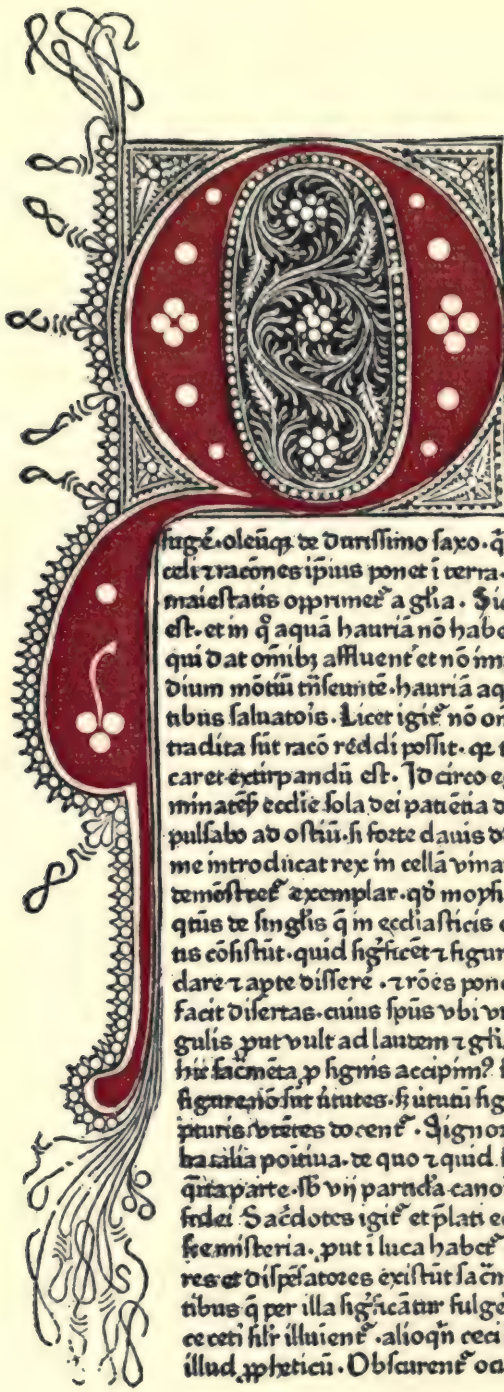 Q
sugē.oleūqꝫ de durissimo saxo.q̄
celi ⁊racōnes ip̄ius ponet ī terra.
maiestatis opprimet᷑ a gl̄ia. Si
est.et in q̊ aquā hauriā nō habe
qui dat om̄ibꝫ affluent᷑ et nō imp
dium mōtiū trāseuntē.hauriā aq
tibus saluatoīs. Licet igit᷑ nō om
tradita sūt racō reddi possit.qꝛ
caret extirpandū est. Idcirco e
eccl̄ie sola dei patiētia d
pulsabo ad ostiū.si forte clauis d
me introducat rex in cellā vina
demōstret᷑ exemplar.qd̄ moysi
qtūs de singl̄is q̄ in eccl̄iasticis
tis cōsistūt.quid sigficēt ⁊ figur
clare ⁊ apte dissere᷑.⁊ rōes pone
facit disertas.cuius sp̄us vbi vu
gulis ꝓut vult ad laudem ⁊ gl̄i
hic sac̄mēta ꝓ signis accipim?
figure nō sūt v̄tutes.sꝫ v̄tutū sig
pturis vtētes docent᷑. Signor
tralia positiua.de quo ⁊ quid.
q̄rta parte.sb̄ vij particl̄a.cano
fidei Sac̄dotes igit᷑ et p̄lati ec
misteria.ꝓut ī luca habet᷑
res et dispēsatores existūt sac̄m
tibus q̄ per illa sigficātur fulge
ce ceti filī illuient᷑.alioqn̄ ceci
illud ꝓpheticū.Obscurent᷑ oc